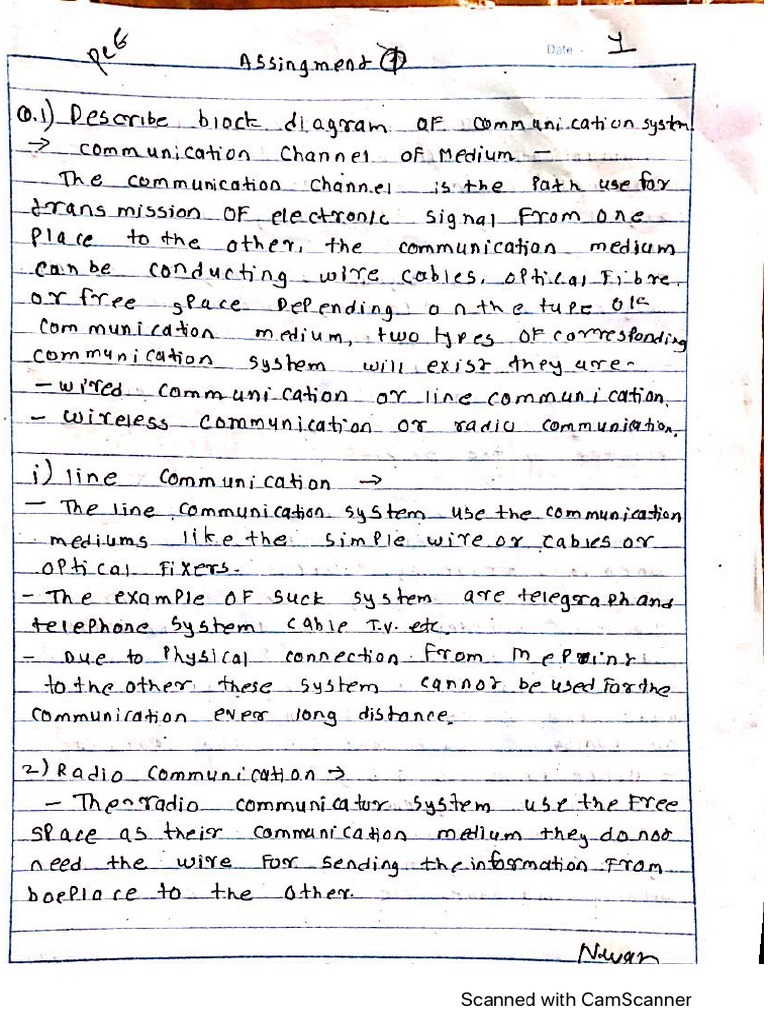 PCE
Date - 1
Assingment ①
Q.1) Describe block diagram OF communication systm
→ communication Channel of Medium –
The communication channel is the Path use for
transmission OF electronic signal From one
Place to the other, the communication medium
can be conducting wire cables, optical Fibre
or free space Depending on the type of
communication medium, two types OF corresponding
communication system will exist they are-
– wired communication or line communication.
– wireless communication or radio communication.
i) line communication →
– The line communication system use the communication
mediums like the simple wire or cables or
optical Fixers.
– The example OF suck system are telegraph and
telephone system cable T.V. etc.
– Due to Physical connection From
to the other these system cannot be used For the
communication ever long distance.
2) Radio communication →
– The radio communicator system use the Free
space as their communication medium they do not
need the wire For sending the information From
to the other.
Scanned with CamScanner